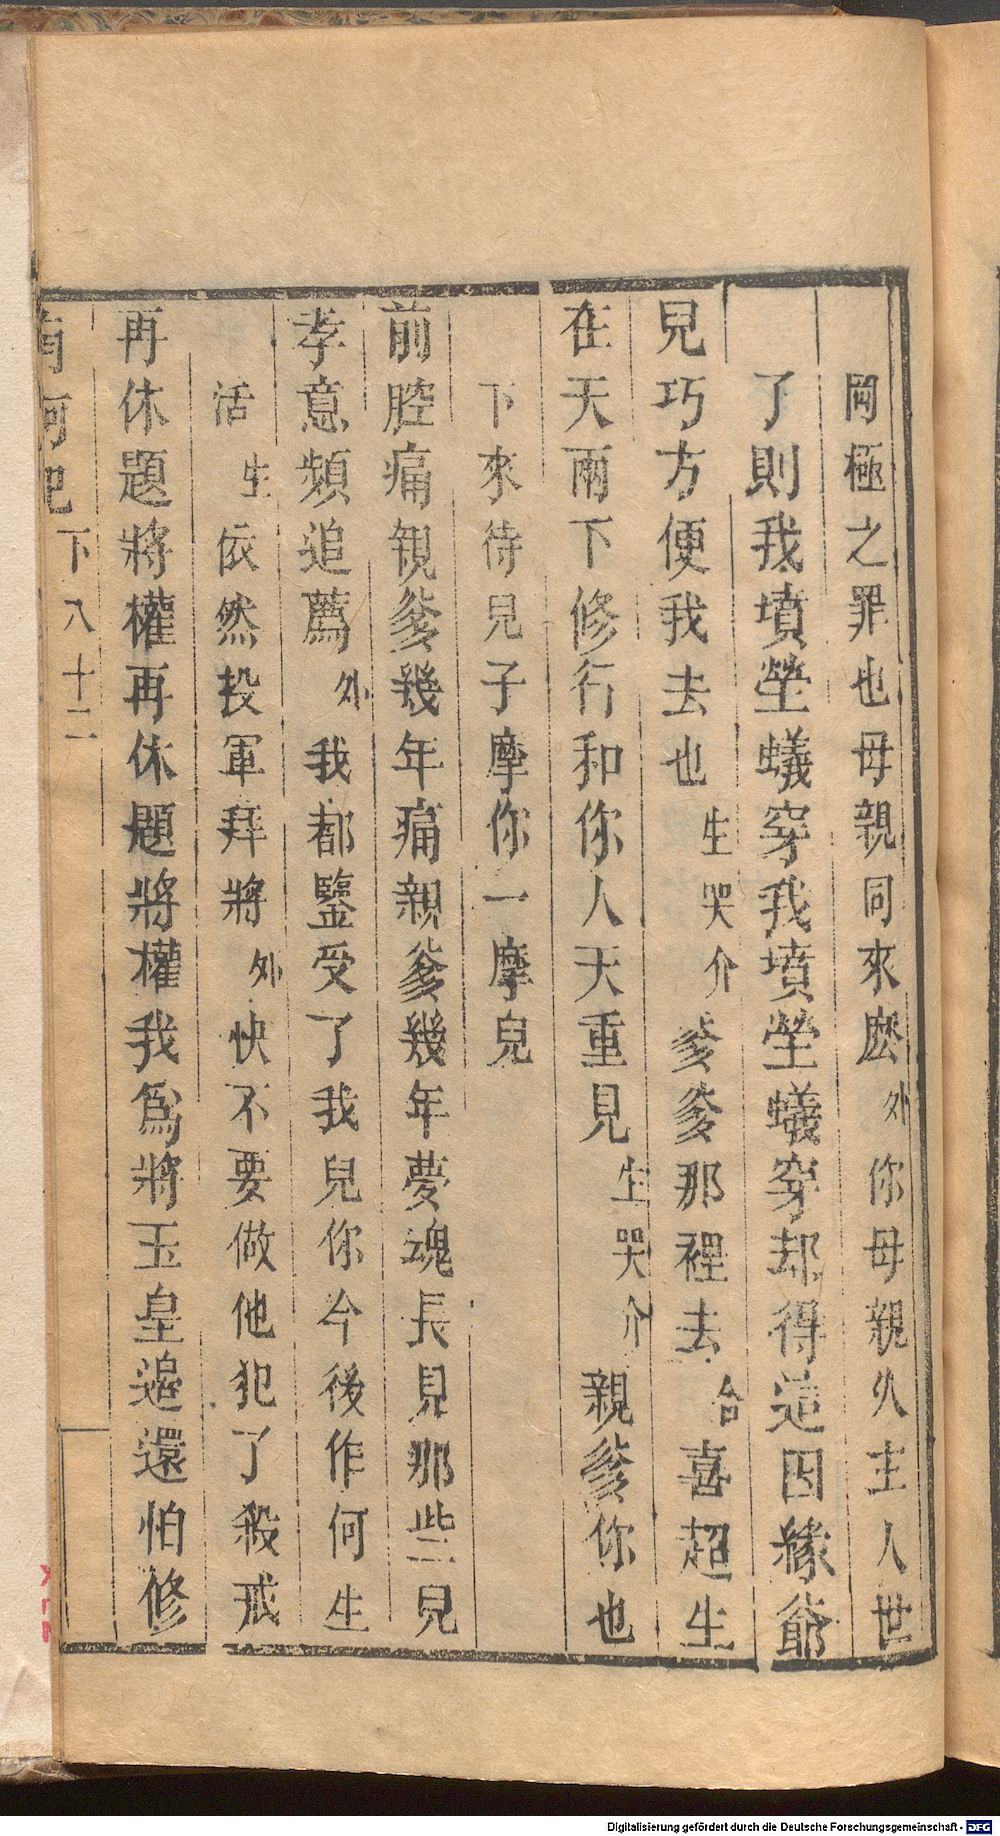 罔極之罪也母親同來麽外你母親久主人世
了則我墳塋蟻穿我墳塋蟻穿却得這因緣爺
兒巧方便我去也生哭介爹爹那裡去合喜超生
在天兩下修行和你人天重見生哭介親爹你也
下來待兒子摩你一摩兒
前腔痛親爹幾年痛親爹幾年夢魂長見那些兒
孝意頻追薦外我都鑒受了我兒你今後作何生
活生依然投軍拜將外快不要做他犯了殺戒
再休題將權再休題將權我爲將玉皇邉還怕修
南柯記 下 八十二
Digitalisierung gefördert durch die Deutsche Forschungsgemeinschaft - DFG